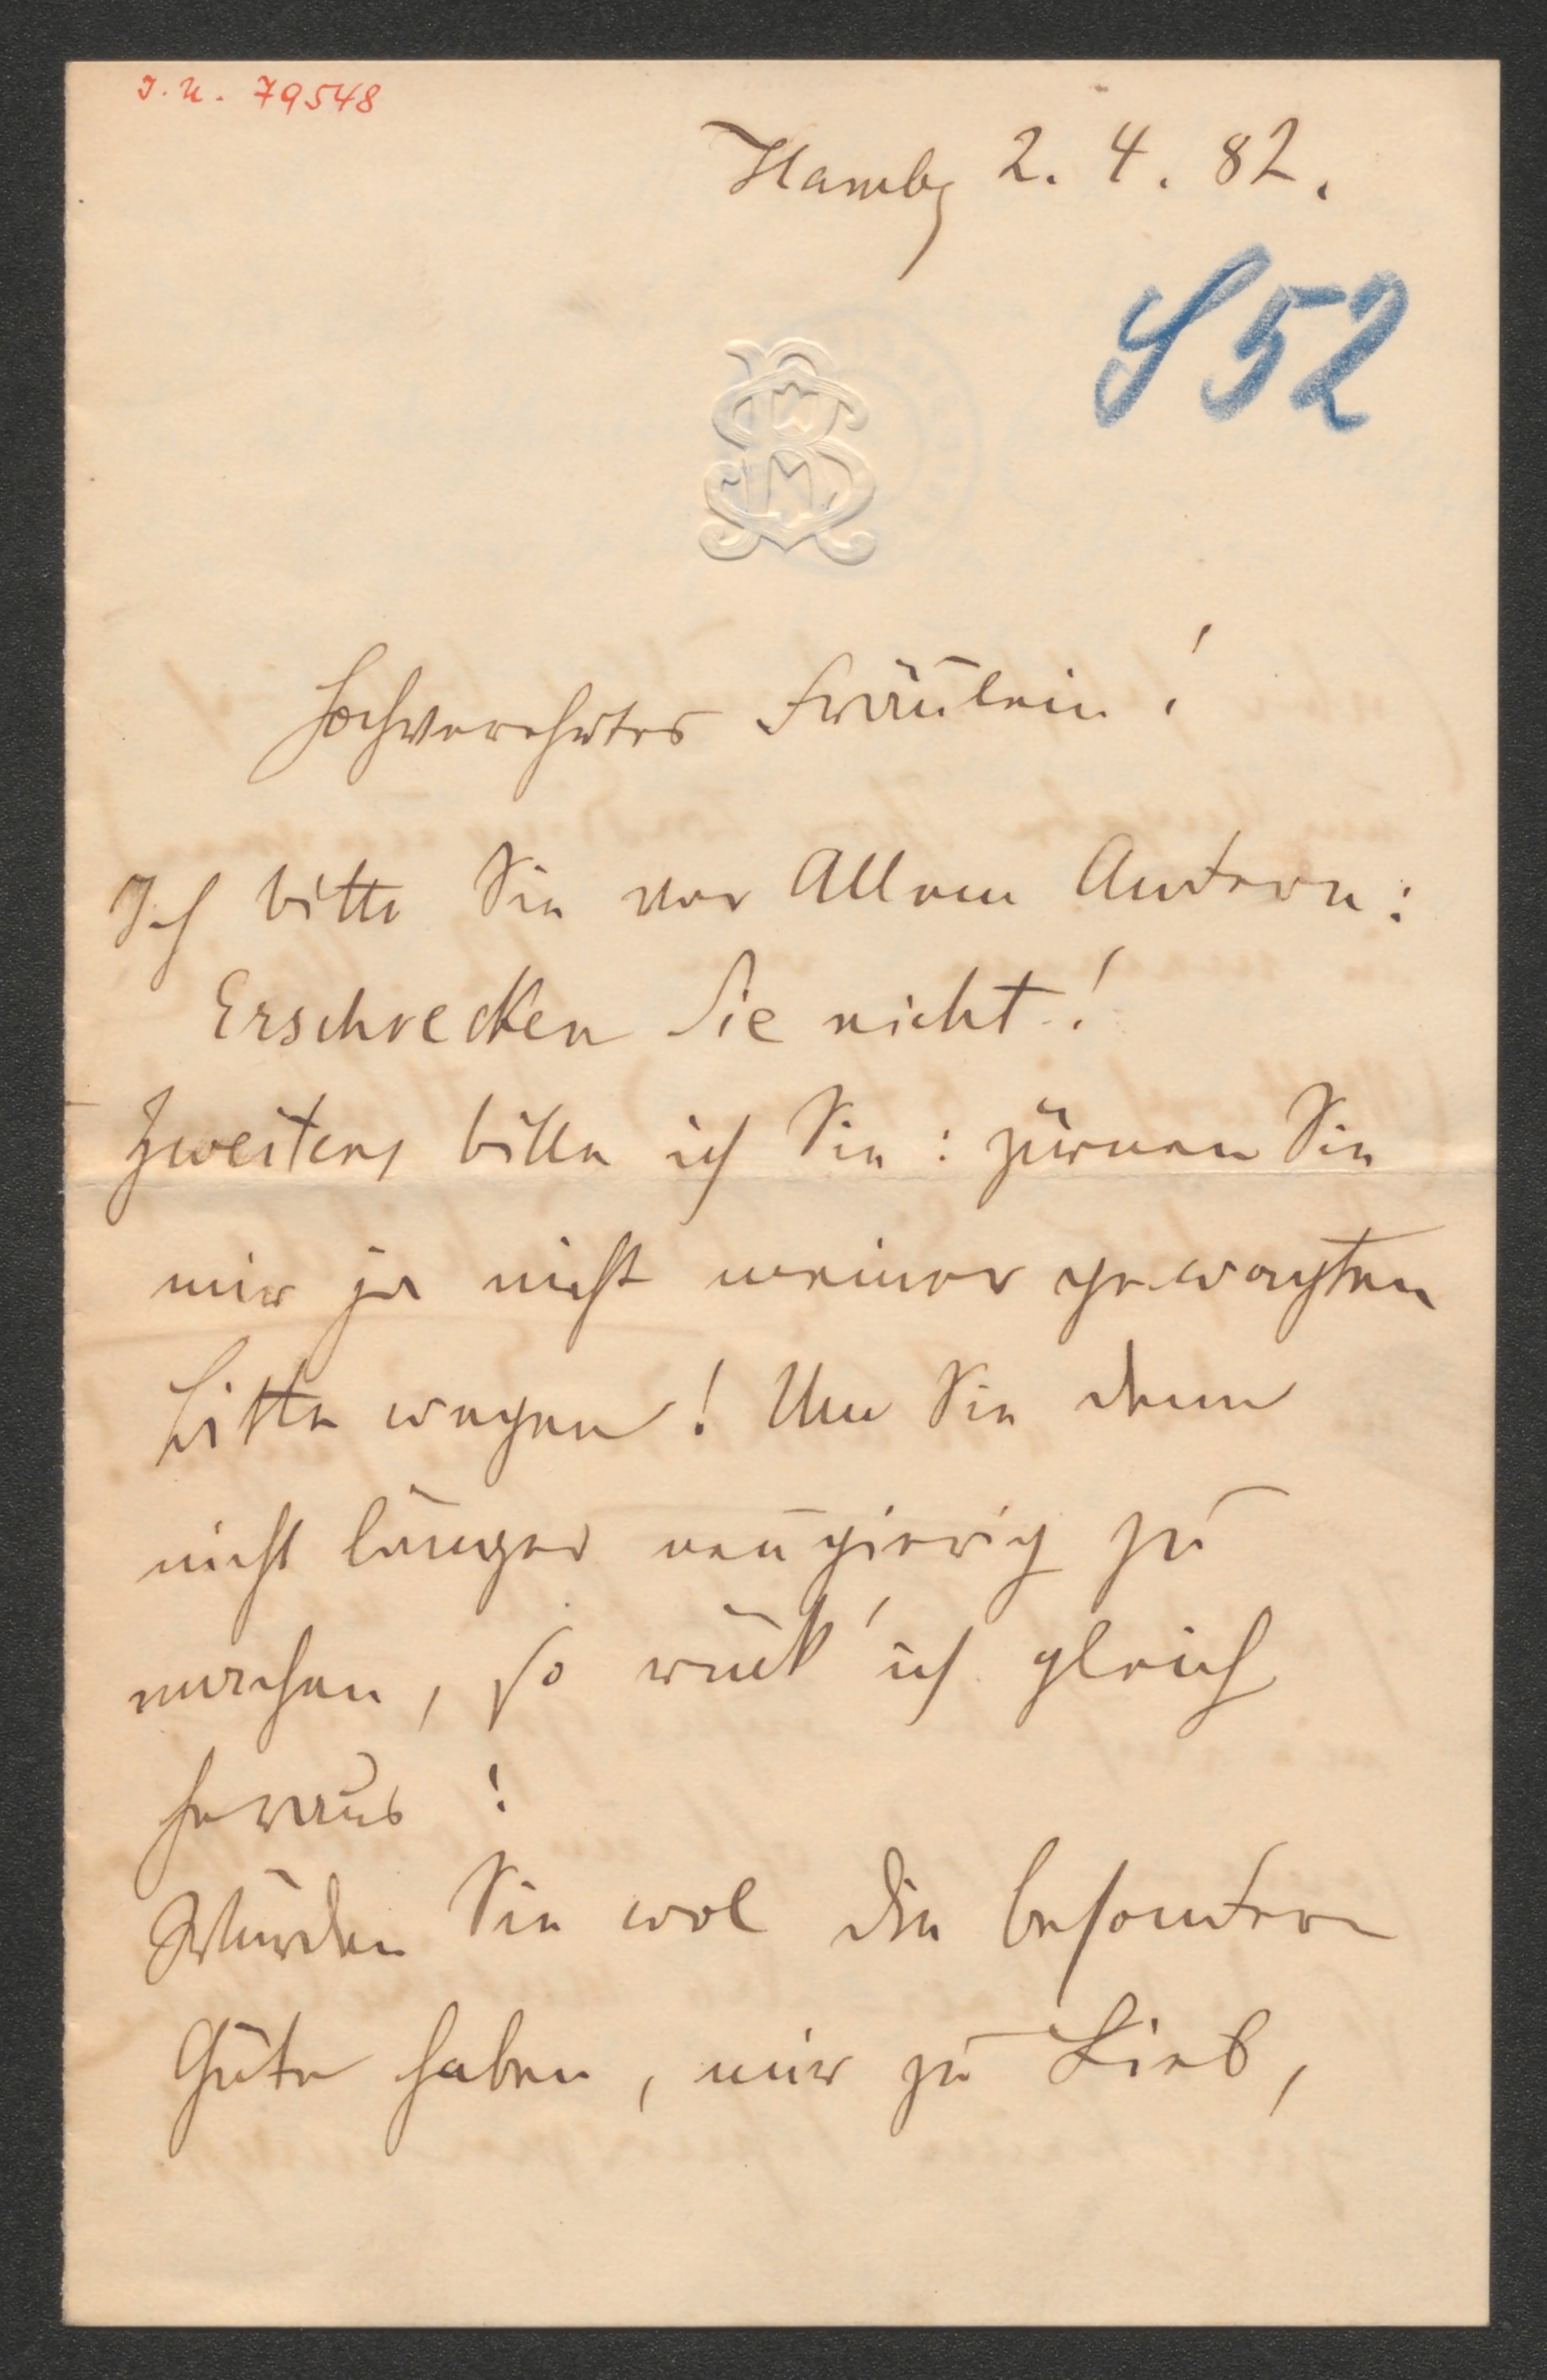 J.N. 79548
Hambg 2. 4. 82.
S 52
Hochverehrtes Fräulein!
Ich bitte Sie vor Allem Andern:
Erschrecken Sie nicht!
Zweitens bitte ich Sie: zürnen Sie
mir ja nicht meiner gewagten
Bitte wegen! Um Sie denn
nicht länger neugierig zu
machen, so rück' ich gleich
heraus!
Würden Sie wol die besondere
Güte haben, mir zu Lieb,